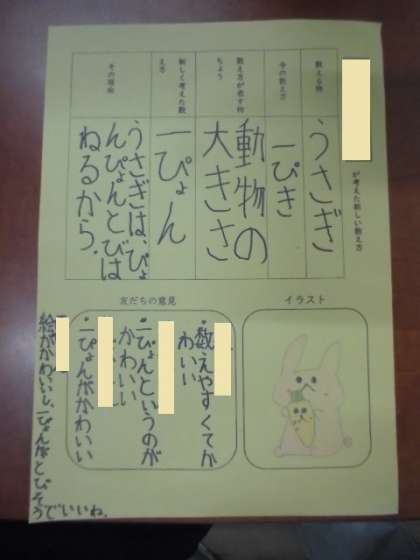 が考えた新しい数え方
数える物
うさぎ
今の数え方
一ぴき
数え方が表す特
ちょう
動物の
大きさ
新しく考えた数
え方
一ぴょん
その理由
うさぎは、ぴょ
んぴょんとびは
ねるから。
イラスト
友だちの意見
・数えやすくてか
わいい
・一ぴょんというのが
かわいい
・一ぴょんがかわいい
絵がかわいいし、一ぴょんがとびそうでいいね。